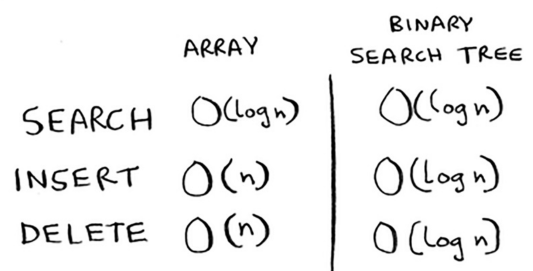 ARRAY
BINARY
SEARCH TREE
SEARCH O(log n) O(log n)
INSERT O(n) O(log n)
DELETE O(n) O(log n]